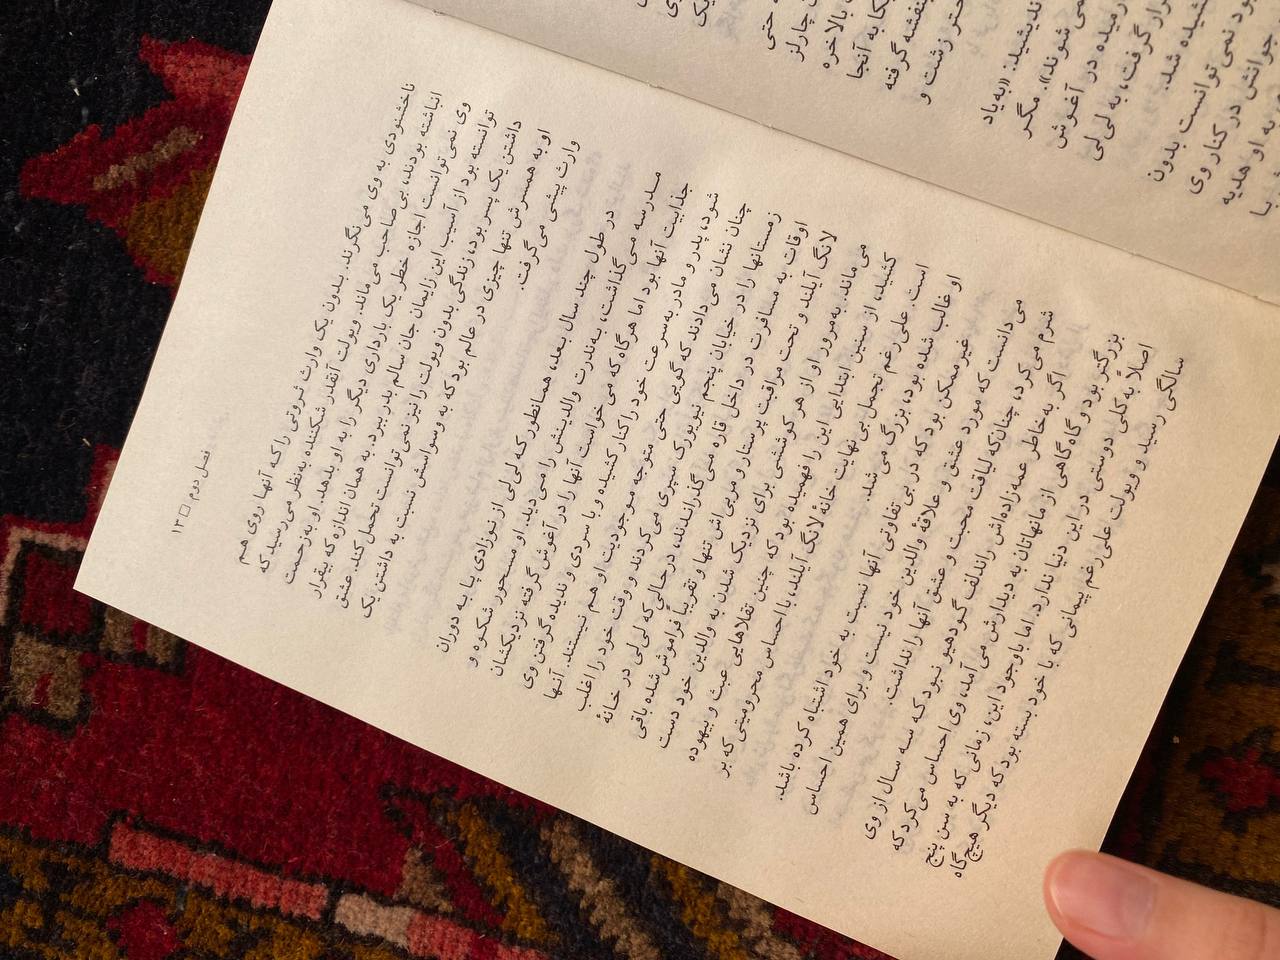 فصل دوم □ ۱۳
ناخشنودی به وی می‌نگرند. بدون یک وارث ثروتی را که آنها روی هم
انباشته بودند، بی صاحب می‌ماند. ویولت آنقدر شکننده به‌نظر می‌رسید که
وی نمی‌توانست اجازه خطر یک بارداری دیگر را به او بدهد. او به‌زحمت
توانسته بود از آسیب این زایمان جان سالم بدر ببرد. به همان اندازه که بیقرار
داشتن یک پسر بود، زندگی بدون ویولت را نیز نمی‌توانست تحمل کند. عشق
او به همسرش تنها چیزی در عالم بود که به وسواسش نسبت به داشتن یک
وارث پیشی می‌گرفت.
در طول چند سال بعد، همانطور که لی‌لی از نوزادی پا به دوران
مدرسه می‌گذاشت، به‌ندرت والدینش را می‌دید. او مسحور شکوه و
جذابیت آنها بود اما هرگاه که می‌خواست آنها را در آغوش گرفته نزدیکشان
شود، پدر و مادر به‌سرعت خود را کنار کشیده و با سردی و ندیده گرفتن وی
چنان نشان می‌دادند که گویی حتی متوجه موجودیت او هم نیستند. آنها
زمستانها را در خیابان پنجم نیویورک سپری می‌کردند و وقت خود را اغلب
اوقات به مسافرت در داخل قاره می‌گذراندند، درحالی‌که لی‌لی در خانهٔ
لانگ آیلند و تحت مراقبت پرستار و مربی‌اش تنها و تقریباً فراموش شده باقی
می‌ماند. به‌مرور او از هر کوششی برای نزدیک شدن به والدین خود دست
کشید، از سنین ابتدایی این را فهمیده بود که چنین تقلاهایی عبث و بیهوده
است. علی‌رغم تجمل بی‌نهایت خانه لانگ آیلند، با احساس محرومیتی که بر
او غالب شده بود، بزرگ می‌شد.
غیرممکن بود که در بی‌تفاوتی آنها نسبت به خود اشتباه کرده باشد.
می‌دانست که مورد عشق و علاقه والدین خود نیست و برای همین احساس
شرم می‌کرد، چنان‌که لیاقت محبت و عشق آنها را نداشت.
اگر به‌خاطر عمه‌زاده‌اش راندلف گودهیو نبود که سه سال از وی
بزرگتر بود و گاه‌گاهی از مانهاتان به دیدارش می‌آمد، وی احساس می‌کرد که
اصلاً به‌کلی دوستی در این دنیا ندارد. اما باوجود این، زمانی که به سن پنج
سالگی رسید و ویولت علی‌رغم پیمانی که با خود بسته بود که دیگر هیچ‌گاه
حتی
چارلز
بالاخره
به آنجا
گرفته
زشت و
«به یاد
نمی شوند». مگر
در آغوش
قرار گرفت، به لی‌لی
شد.
نمی توانست بدون
جوانش در کنار وی
به او هدیه
با